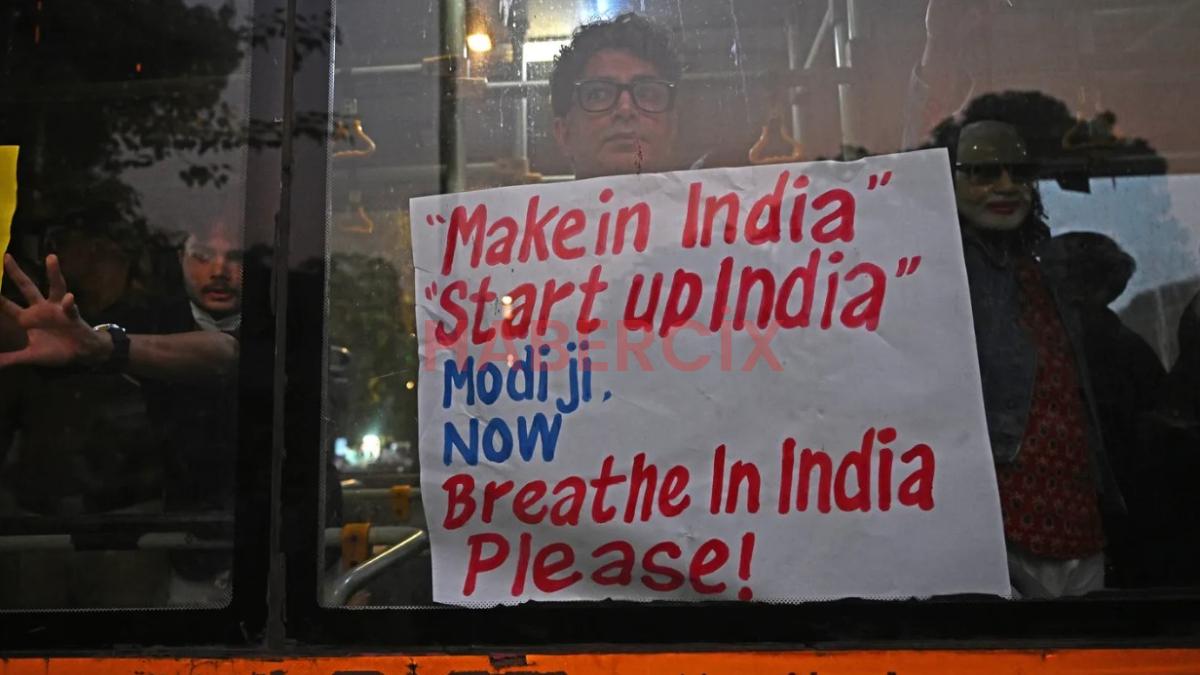 "Make in India"
"Start up India"
HABERCİX
Modi ji,
NOW
Breathe In India
Please!